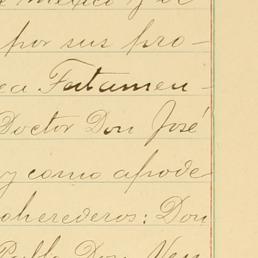 e Mexico y de
por sus pro-
ca Testamen-
Doctor Don José
y como apode
oherederos: Don
Pablo Don Ven